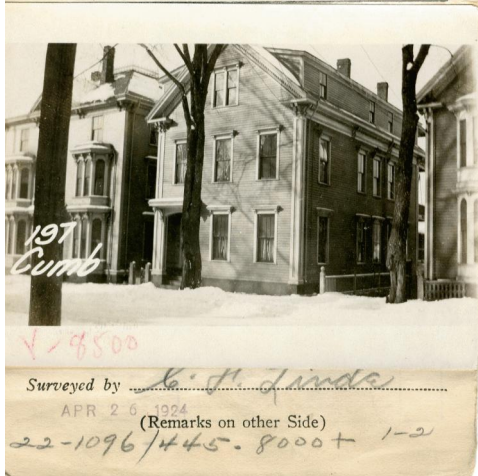 197
Cumb
V 8500
Surveyed by C. P. Linda
APR 26 1924
(Remarks on other Side)
22-1096/445. 8000+ 1-2